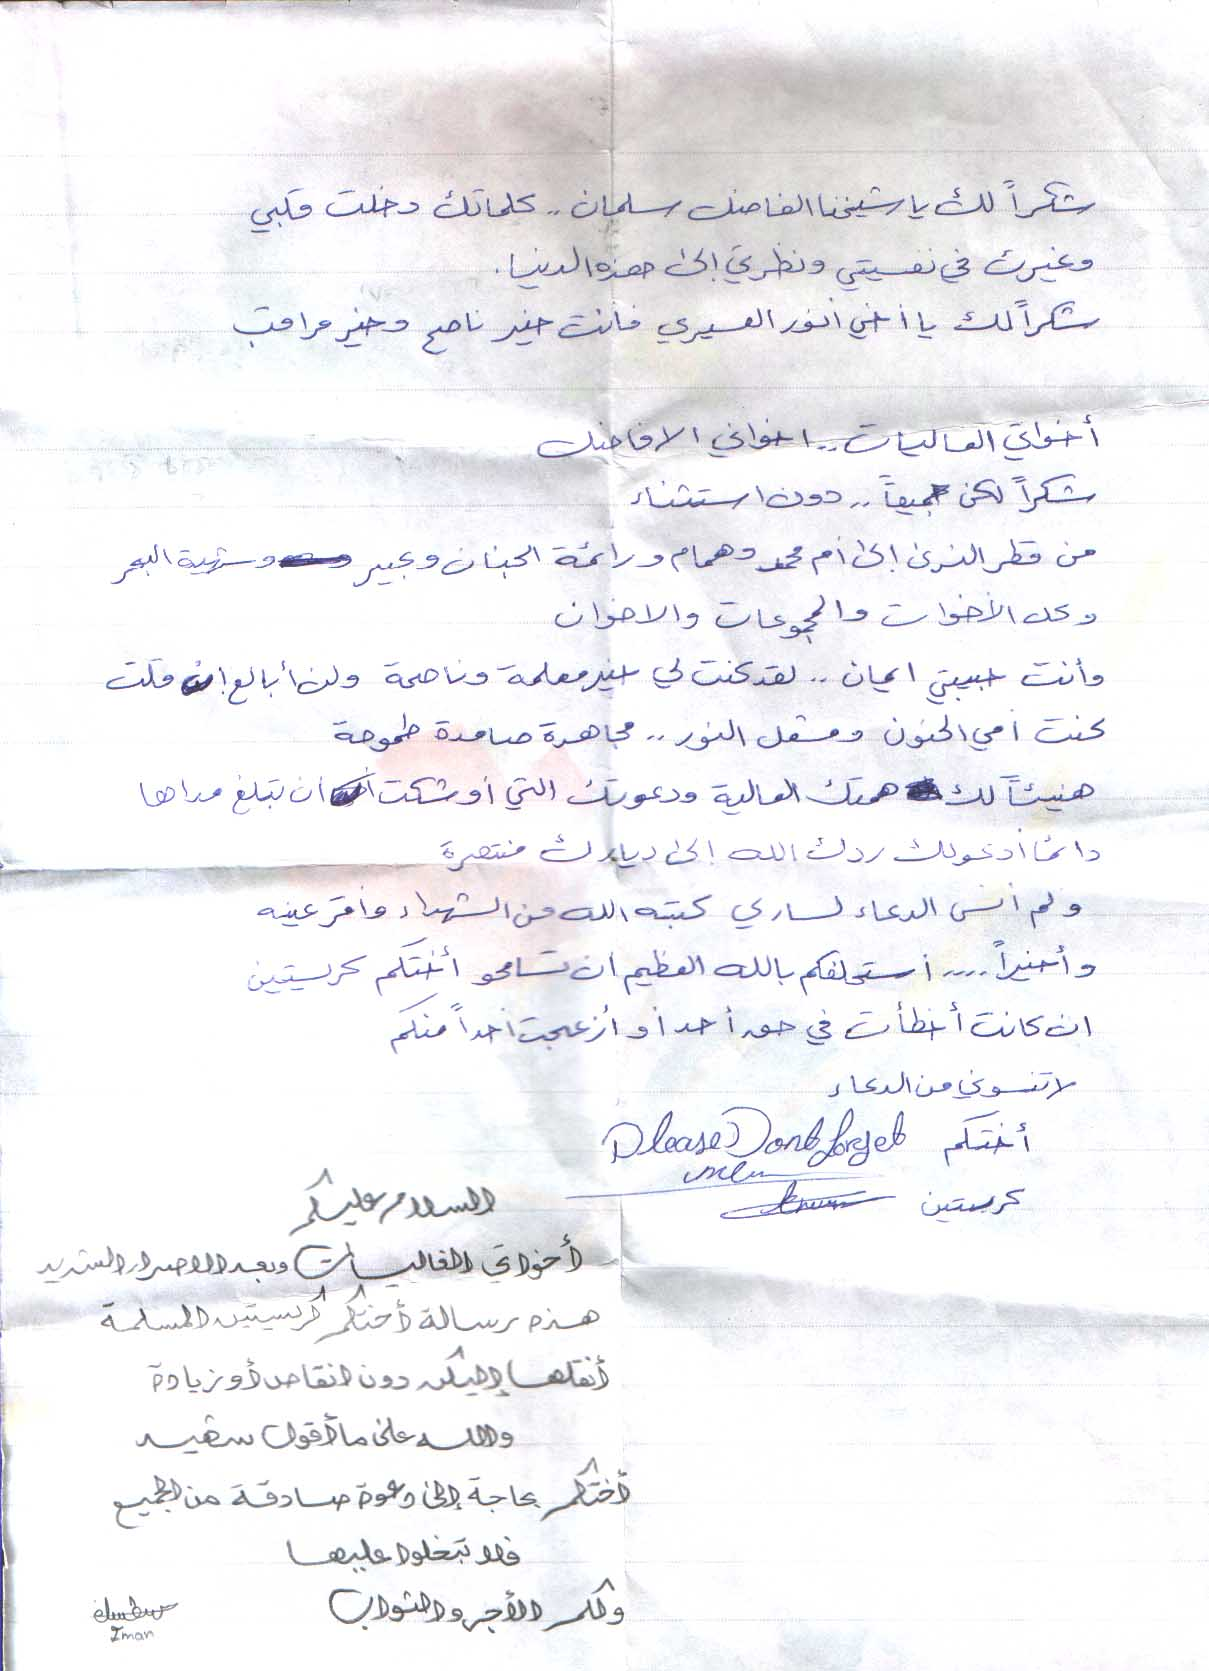 شكراً لك يا شيخنا الفاضل سلمان .. كلماتك دخلت قلبي
وغيرت في نفسيتي ونظرتي إلى هذه الدنيا.
شكراً لك يا أخي أنور العسيري فأنت خير ناصح وخير مراقب
أخواتي الغاليات .. اخواني الافاضل
شكراً لكن جميعاً .. دون استثناء
من قطر الندى إلى أم محمد وهمام ورائحة الجنان وعبير وشهية البحر
وكل الأخوات والمجموعات والاخوان
وأنت حبيبتي ايمان .. لقد كنت لي خير معلمة وناصحة ولن أبالغ إن قلت
كنت أمي الحنون ومشعل النور .. مجاهدة صامدة طموحة
هنيئاً لك همتك العالية ودعوتك التي أوشكت أن تبلغ مداها
دائماً أدعو لك ردك الله إلى ديارك منتصرة
ولم أنس الدعاء لساري كتبه الله من الشهداء وأقر عينه
وأخيراً .... أستحلفكم بالله العظيم ان تسامحو أختكم كريستين
ان كانت أخطأت في حق أحد أو أزعجت أحداً منكم
لا تنسوني من الدعاء
أختكم Please Dont forget
me
كريستين
السلام عليكم
أخواتي الغاليات وبعد الاصرار الشديد
هذه رسالة أختكم كريستين المسلمة
أنقلها إليكم دون انقاص أو زيادة
والله على ما أقول شهيد
أختكم بحاجة إلى دعوة صادقة من الجميع
فلا تبخلوا عليها
ولكم الأجر والثواب
Iman